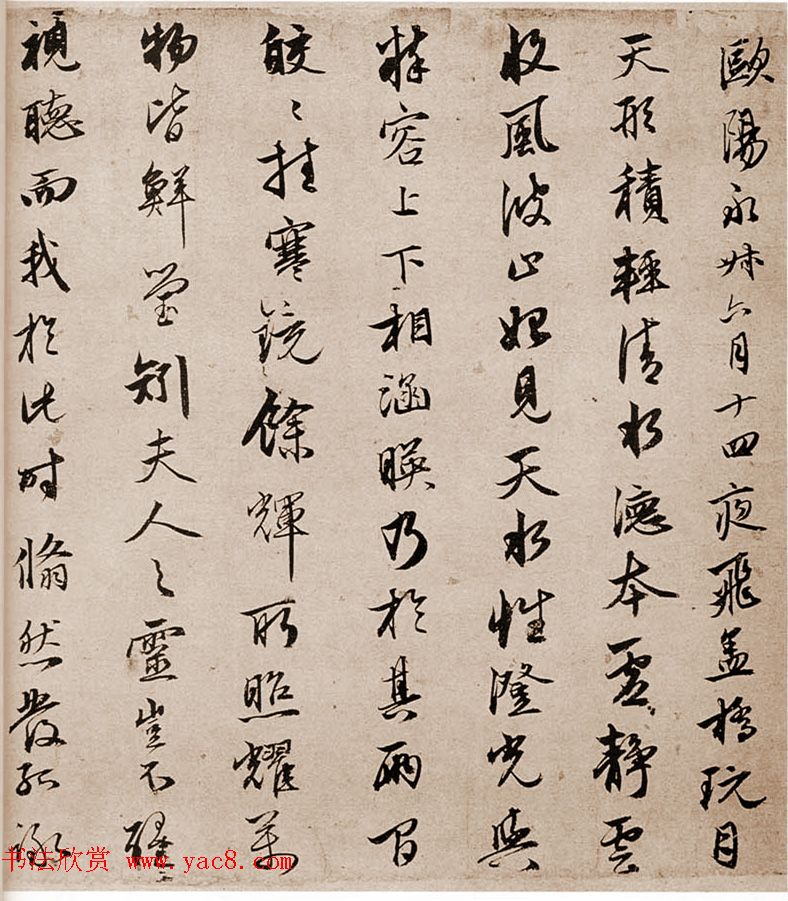 歐陽永叔六月十四夜飛盖橋玩月
天形積輕清水德本虛靜雲
收風波止始見天水性澄光與
粹容上下相涵暎乃於其兩間
皎〻挂寒鏡餘輝所照耀萬
物皆鮮瑩矧夫人之靈豈不醒
視聽而我於此時翛然發孤詠
书法欣赏 www.yac8.com